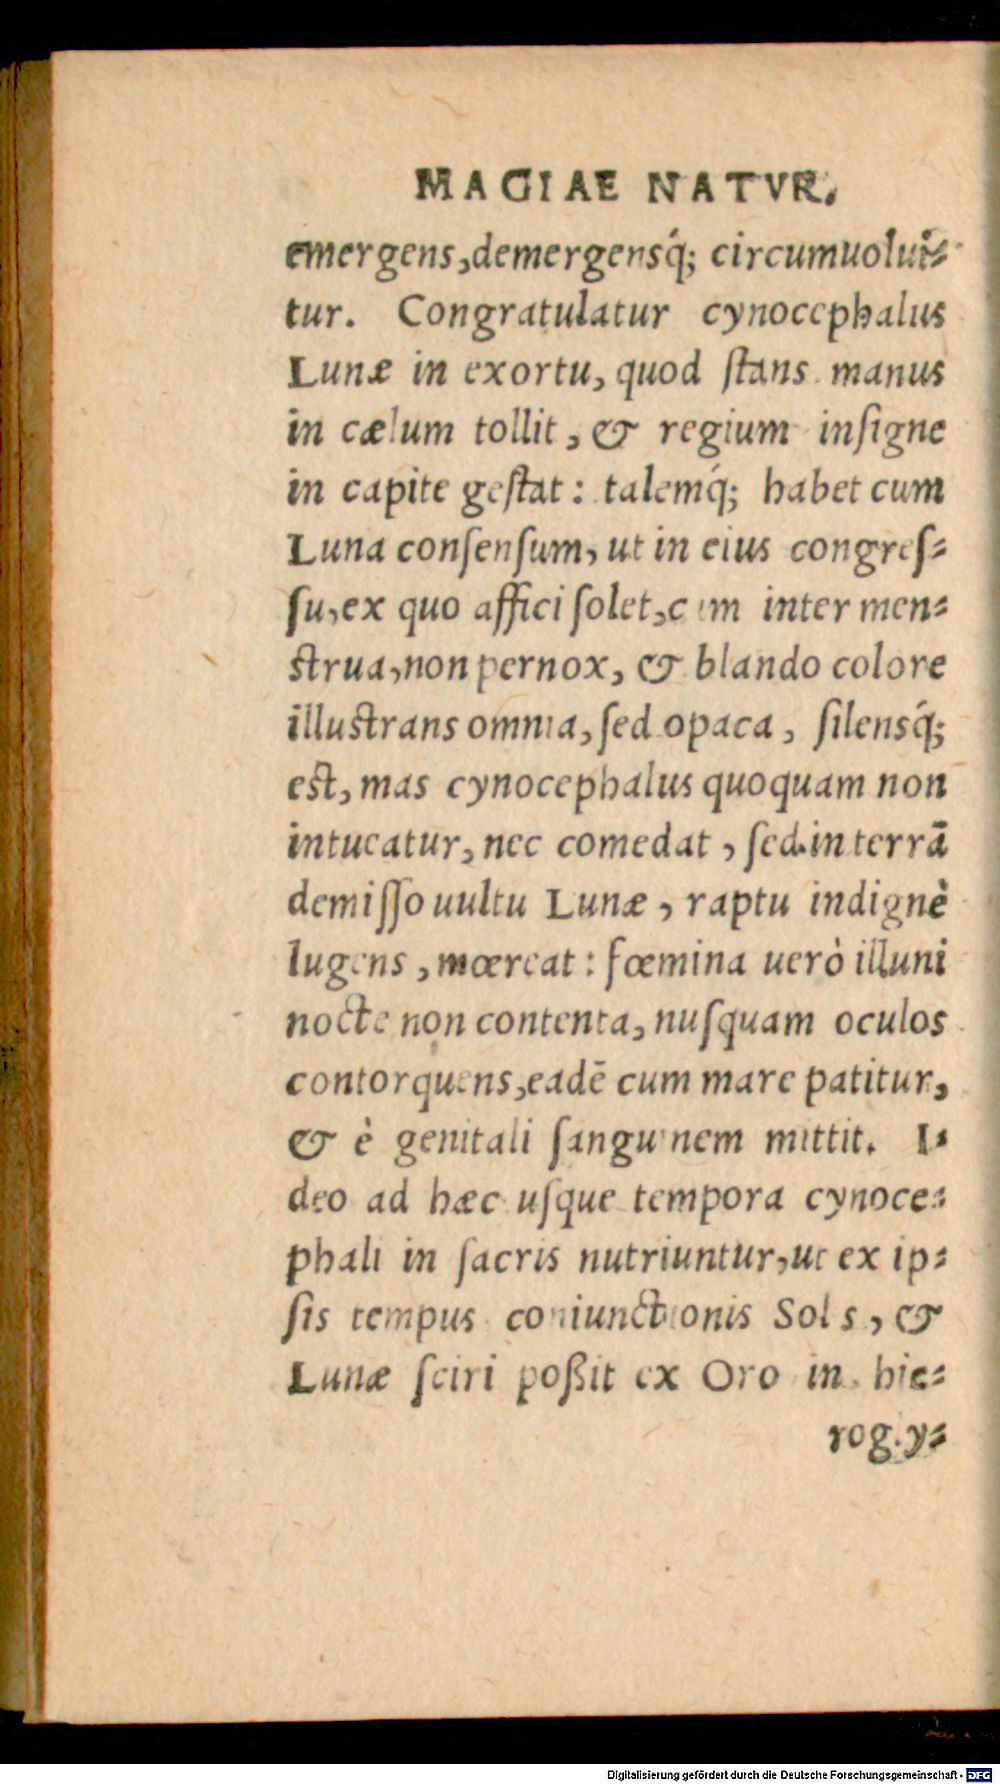 MAGIAE NATVR.
emergens, demergensq́; circumuoluī-
tur. Congratulatur cynocephalus
Lunæ in exortu, quod ſtans manus
in cælum tollit, & regium inſigne
in capite geſtat: talemq́; habet cum
Luna conſenſum, ut in eius congreſ-
ſu, ex quo affici ſolet, cum inter men-
ſtrua, non pernox, & blando colore
illuſtrans omnia, ſed opaca, ſilensq́;
eſt, mas cynocephalus quoquam non
intueatur, nec comedat, ſed in terrā
demiſſo uultu Lunæ, raptu indignè
lugens, mœreat: fœmina uerò illuni
nocte non contenta, nuſquam oculos
contorquens, eadē cum mare patitur,
& è genitali ſanguinem mittit. I-
deo ad hæc uſque tempora cynoce-
phali in ſacris nutriuntur, ut ex ip-
ſis tempus coniunctionis Solis, &
Lunæ ſciri poßit ex Oro in hie-
rogly-
Digitalisierung gefördert durch die Deutsche Forschungsgemeinschaft - DFG